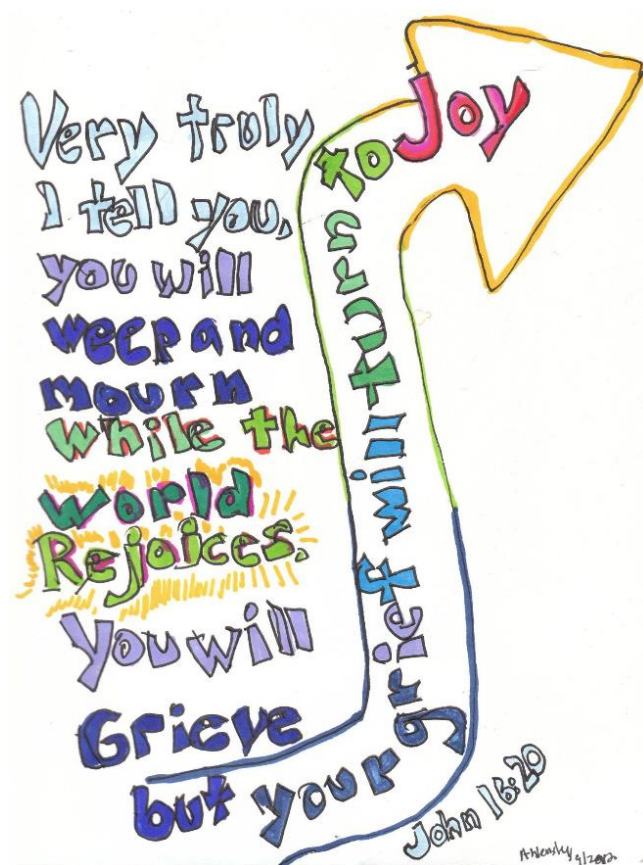 Very truly
I tell you,
you will
weep and
mourn
while the
world
Rejoices.
You will
Grieve
but your grief will turn to Joy
John 16:20